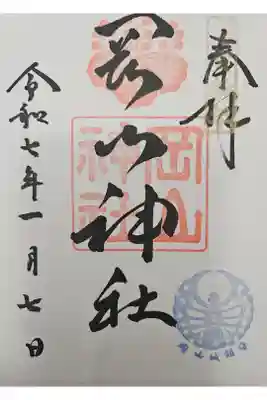 奉拝
岡山神社
岡山
神社
令和七年一月七日